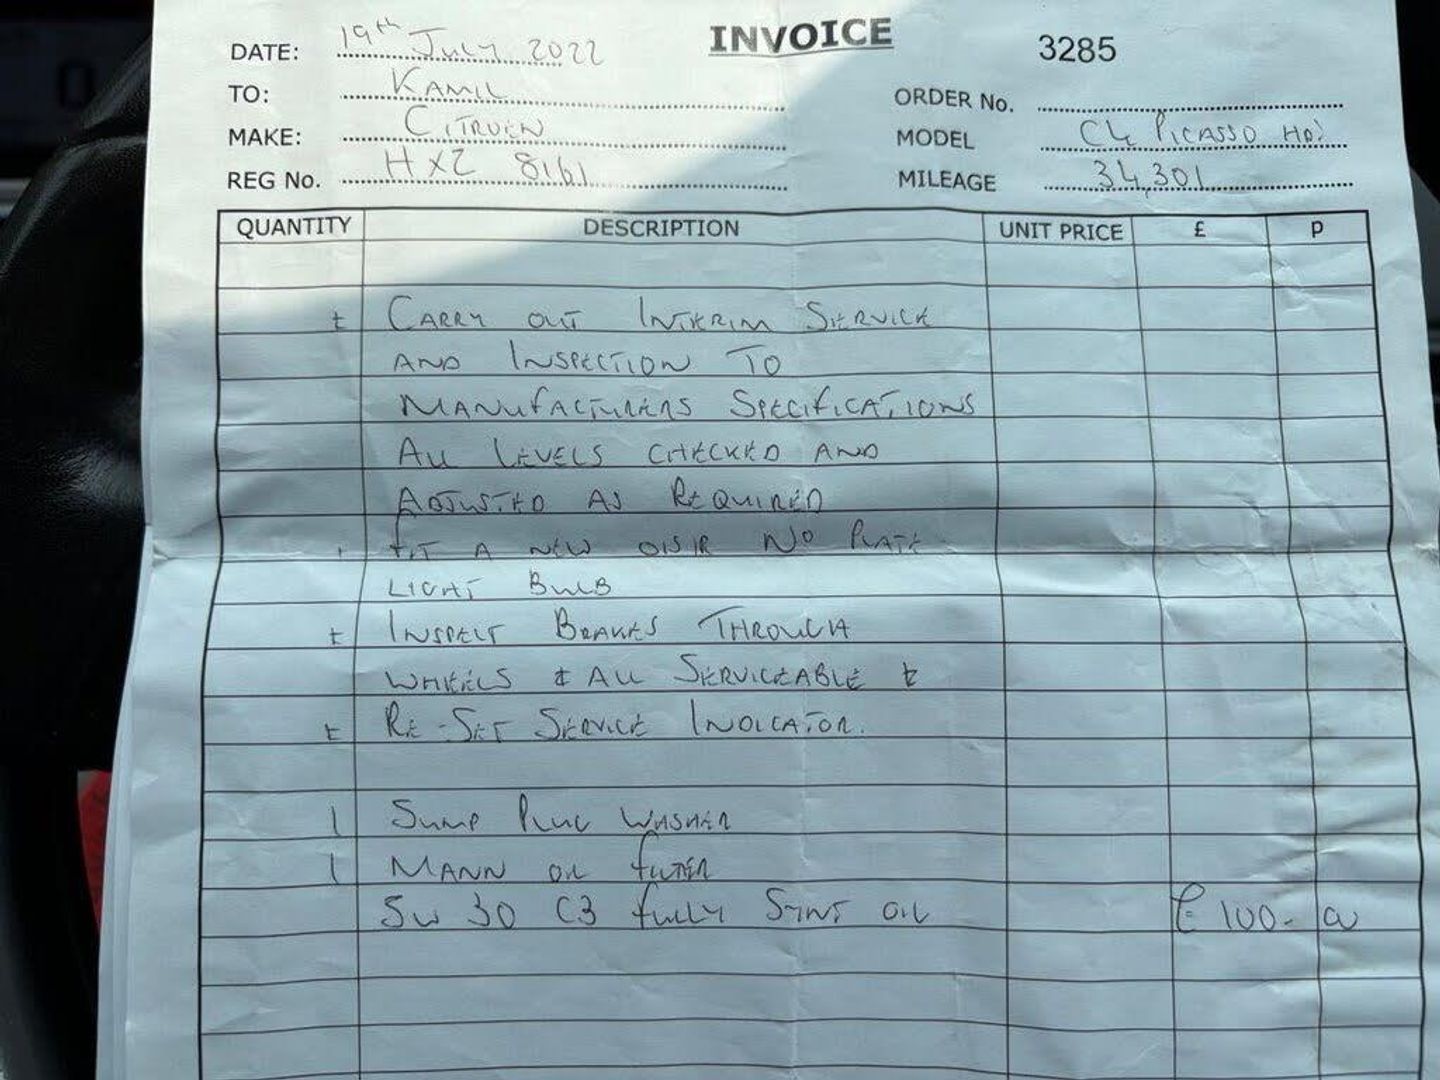 INVOICE
3285
DATE: 19th July 2022
TO: KAMIL
ORDER No.
MAKE: CITROEN
MODEL C4 PICASSO HDI
REG No. HXZ 8161
MILEAGE 34,301
QUANTITY DESCRIPTION UNIT PRICE £ P
CARRY OUT INTERIM SERVICE
AND INSPECTION TO
MANUFACTURERS SPECIFICATIONS
ALL LEVELS CHECKED AND
ADJUSTED AS REQUIRED
FIT A NEW NO PLATE
LIGHT BULB
INSPECT BRAKES THROUGH
WHEELS & ALL SERVICEABLE
RE-SET SERVICE INDICATOR.
1 SUMP PLUG WASHER
1 MANN OIL FILTER
5W 30 C3 FULLY SYNT OIL £ 100-00